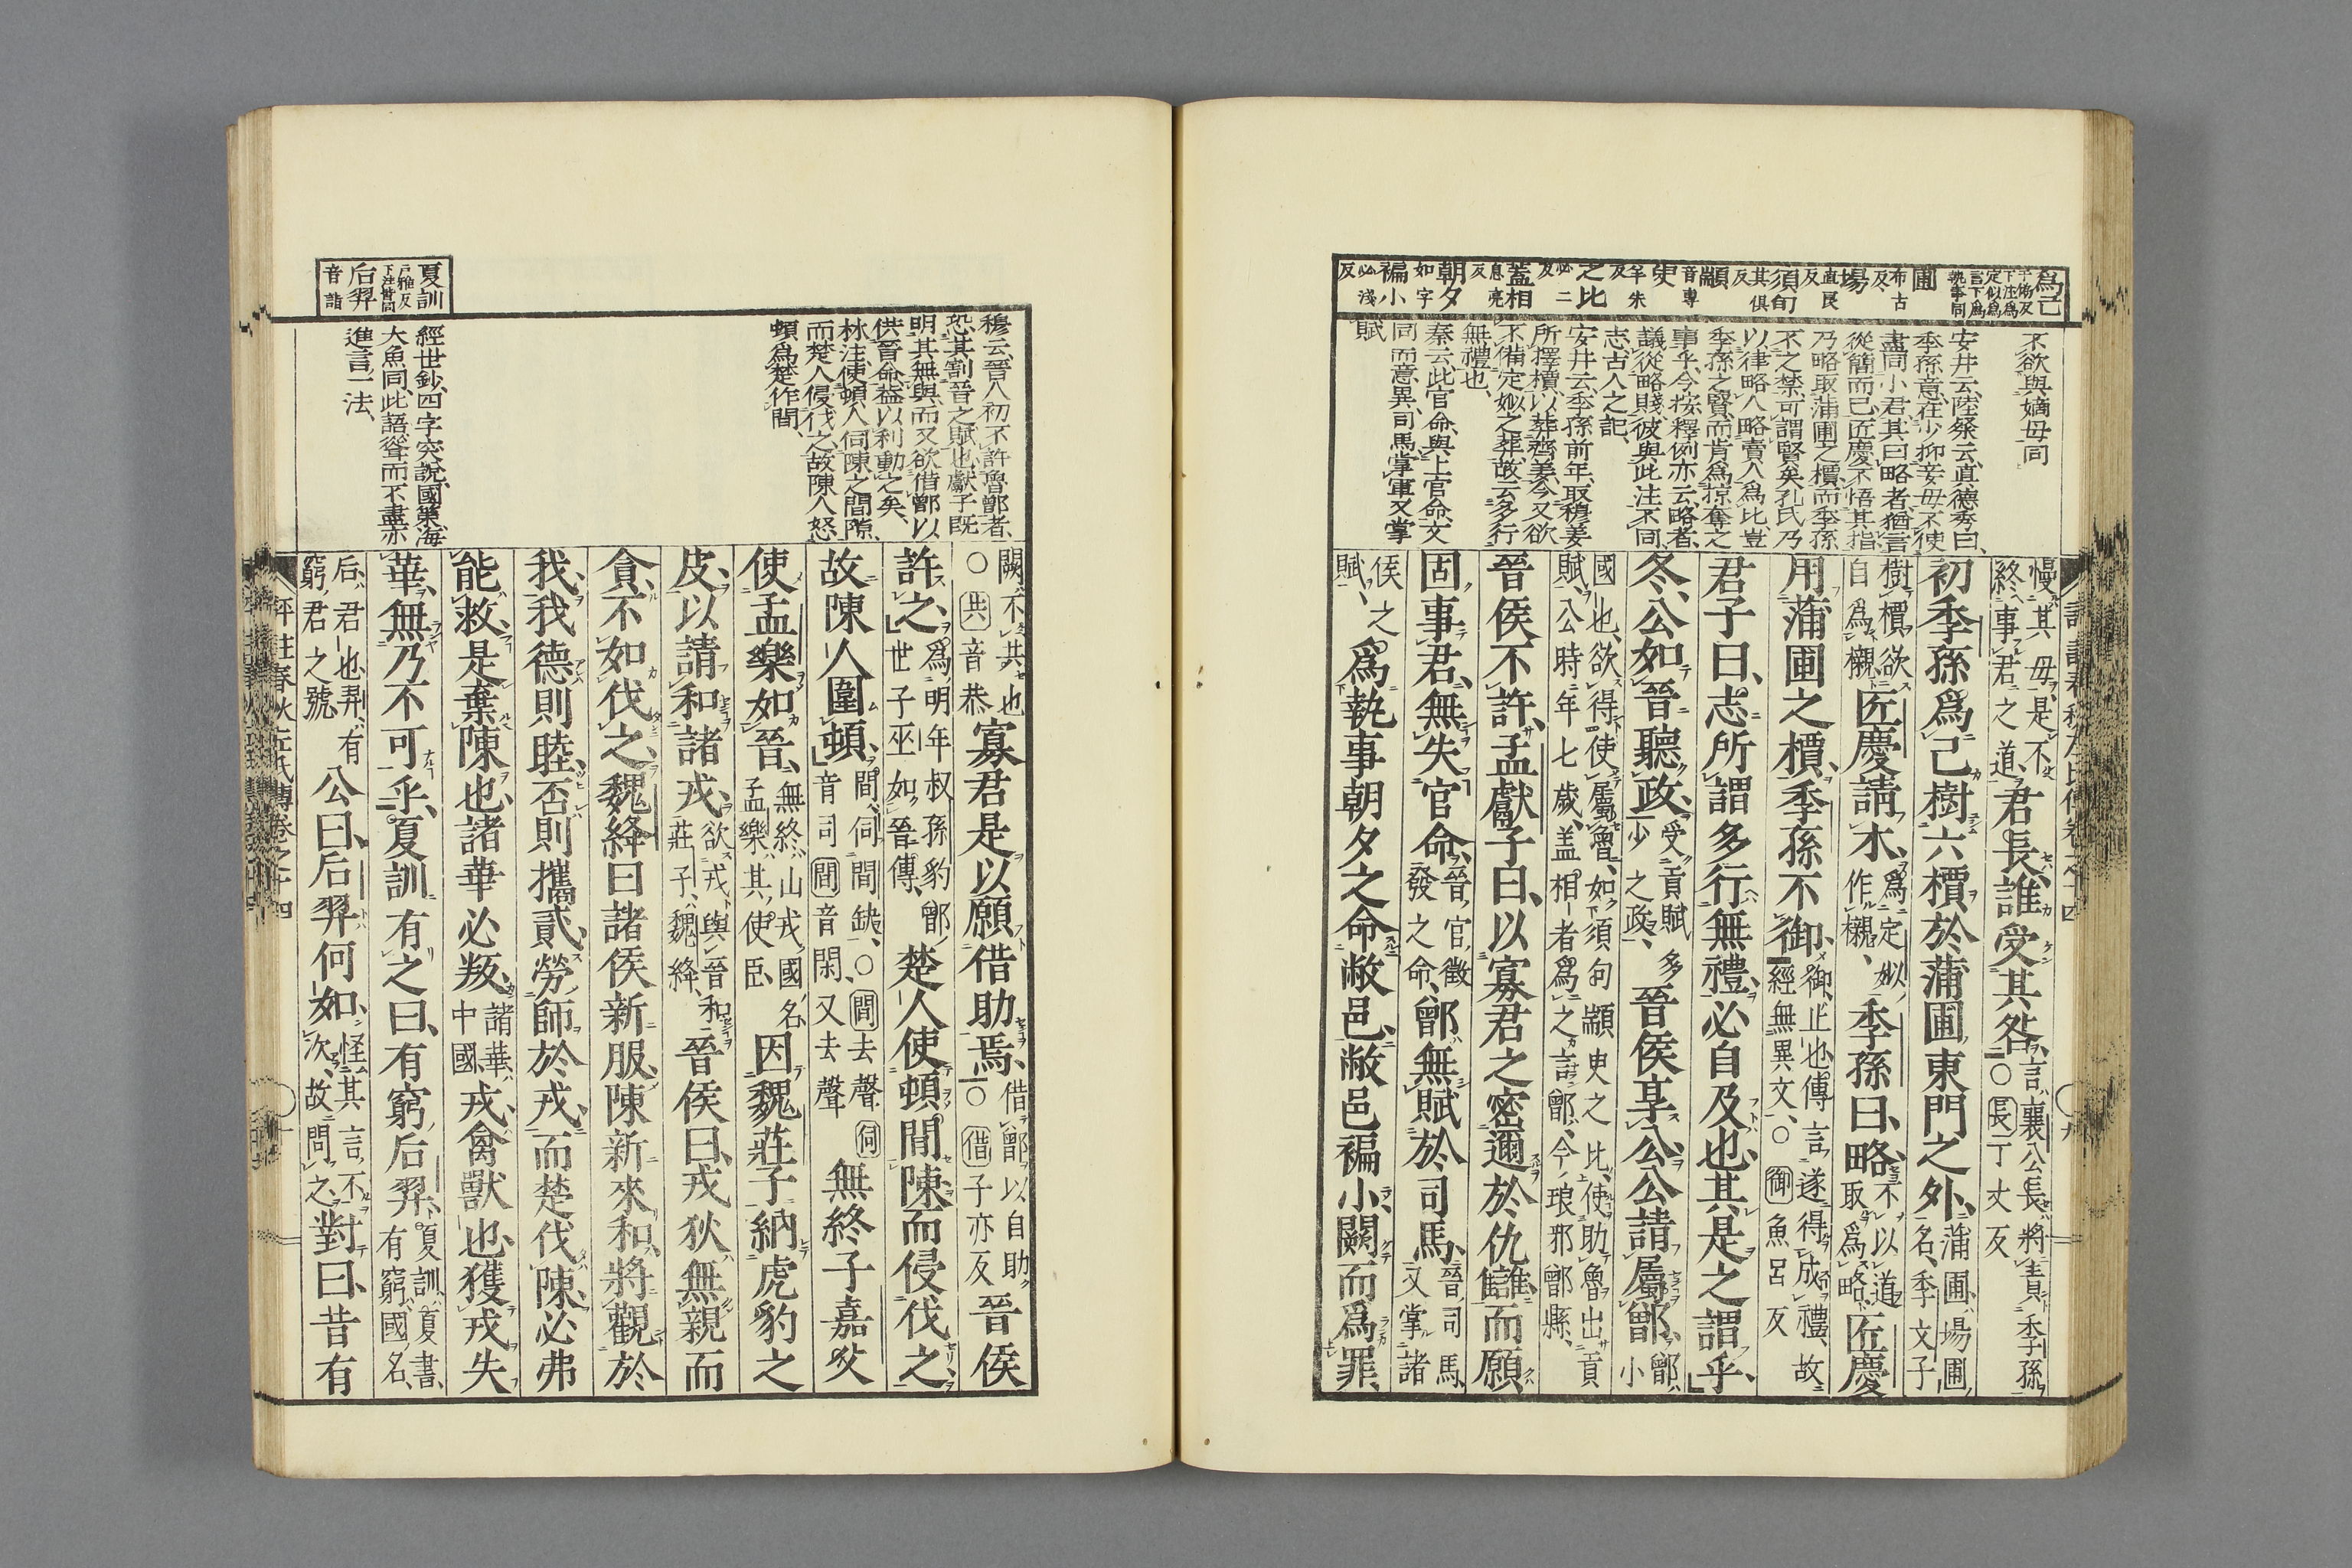 為己 于偽反下注為定姒為言下為執事同
圃 布古反
場 直良反
須句 其俱反
顓 音專
臾 羊朱反
之比 必二反
蓋相 息亮反
朝夕 如字
褊小 必淺反
不欲與嫡母同
安井云陸粲云真德秀曰
季孫意在少抑妾母不使
盡同小君其曰略者猶言
從簡而已匠慶不悟其指
乃略取蒲圃之檟而季孫
不之禁可謂賢矣孔氏乃
以律略人略賣人為比豈
季孫之賢而肯為掠奪之
事乎今按釋例亦云略者
議從略賤彼與此注不同
志古人之記
安井云季孫前年取穆姜
所擇檟以葬齊姜今又欲
不備定姒之葬故云多行
無禮也
秦云此官命與上官命文
同而意異司馬掌軍又掌
賦
慢其母是不
終事君之道君長誰受其咎言襄公長將責季孫○長丁丈反
初季孫爲己樹六檟於蒲圃東門之外蒲圃場圃名季文子
樹檟欲
自爲櫬匠慶請木爲定姒作櫬季孫曰略不以道取爲略匠慶
用蒲圃之檟季孫不御御止也傳言遂得成禮故經無異文○御魚呂反
君子曰志所謂多行無禮必自及也其是之謂乎
冬公如晉聽政受貢賦多少之政晉侯享公公請屬鄫鄫小
國也欲得使屬魯如須句顓臾之比使助魯出貢
賦公時年七歲蓋相者爲之言鄫今琅邪鄫縣
晉侯不許孟獻子曰以寡君之密邇於仇讎而願
固事君無失官命晉官徵發之命鄫無賦於司馬晉司馬又掌諸
侯之
賦爲執事朝夕之命敝邑敝邑褊小闕而爲罪
夏訓 戶雅反下注皆同
后羿 音詣
穆云晉人初不許魯鄫者
恐其割晉之賦也獻子既
明其無與而又欲借鄫以
供晉命益以利動之矣
林注使頓人伺陳之間隙
而楚人侵伐之故陳人怒
頓爲楚作間
經世鈔四字突說國策海
大魚同此語聳而不盡亦
進言一法
闕不共也
○共音恭寡君是以願借助焉借鄫以自助○借子亦反晉侯
許之爲明年叔孫豹鄫世子巫如晉傳楚人使頓間陳而侵伐之
故陳人圍頓間伺間缺○間去聲伺音司間音閑又去聲無終子嘉父
使孟樂如晉無終山戎國名孟樂其使臣因魏莊子納虎豹之
皮以請和諸戎欲戎與晉和莊子魏絳晉侯曰戎狄無親而
貪不如伐之魏絳曰諸侯新服陳新來和將觀於
我我德則睦否則攜貳勞師於戎而楚伐陳必弗
能救是棄陳也諸華必叛諸華中國戎禽獸也獲戎失
華無乃不可乎夏訓有之曰有窮后羿夏訓夏書有窮國名
后君也羿有
窮君之號公曰后羿何如怪其言不次故問之對曰昔有
評註春秋左氏傳卷之十四